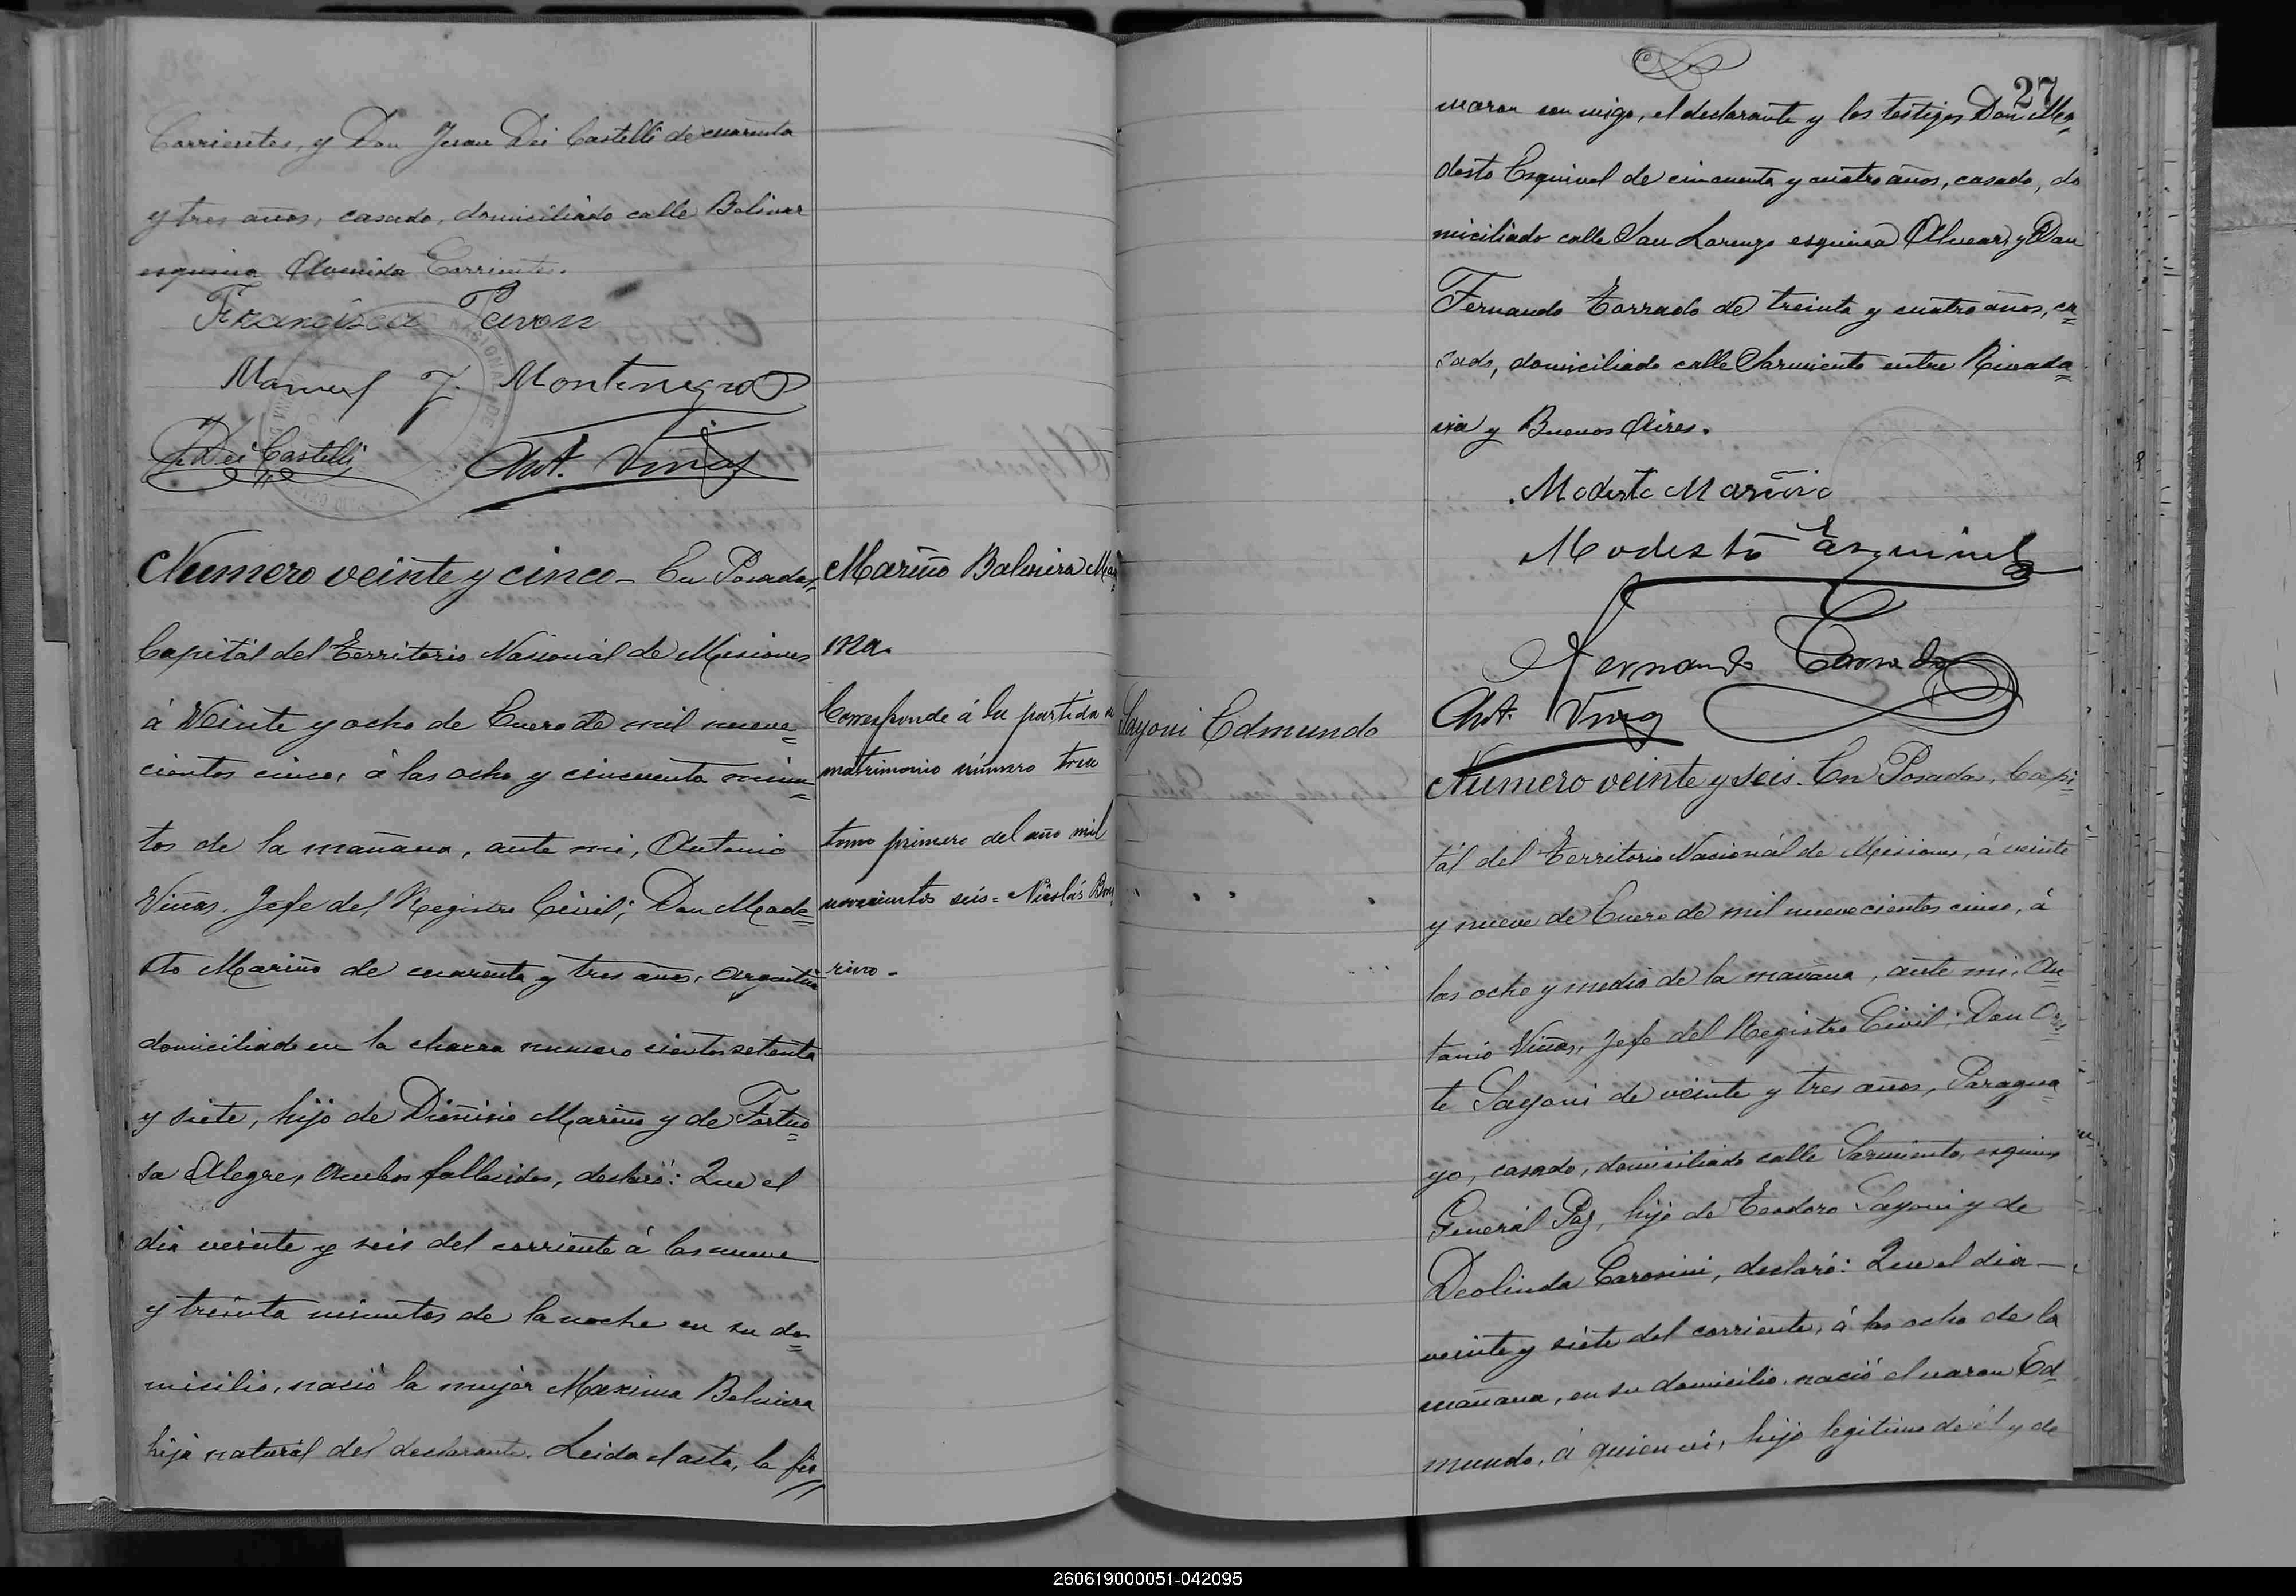 Corrientes, y Don Juan Dei Castelli de cuarenta
y tres años, casado, domiciliado calle Bolivar
esquina Avenida Corrientes.
Francisca Pavon
Manuel J. Montenegro
J. Dei Castelli Ant. Viñas
Numero veinte y cinco - En Posadas,
Capitál del Territorio Nasional de Misiones
á Veinte y ocho de Enero de mil nueve=
cientos cinco, á las ocho y cincuenta minu=
tos de la mañana, ante mi, Antonio
Viñas, Jefe del Registro Civil; Don Mode=
sto Mariño de cuarenta y tres años, argentino
domiciliado en la chacra numero ciento setenta
y siete, hijo de Dionisio Mariño y de Fortuo=
sa Alegre, ambos fallesidos, declaró: Que el
dia veinte y seis del corriente á las nueve
y treinta minutos de la noche en su do=
misilio, nació la mujer Maxima Balvina
hija naturál del declarante. Leida el acta, la fir=
Mariño Balvina Maxi
ma.
Corresponde á la partida de
matrimonio número tres
tomo primero del año mil
novecientos seis = Nicolás
rino -
27
maron conmigo, el declarante y los testigos Don Mo=
desto Esquivel de cincuenta y cuatro años, casado, do
miciliado calle San Lorenzo esquina Alvear, y Don
Fernando Torrado de treinta y cuatro años, ca=
sado, domiciliado calle Sarmiento entre Rivada=
via y Buenos Aires.
Modesto Mariño
Modesto Esquivel
Fernando Torrado
Ant. Viñas
Sayoni Edmundo
Numero veinte y seis. En Posadas, Capi=
tál del Territorio Nacionál de Misiones, á veinte
y nueve de Enero de mil nuevecientos cinco, á
las ocho y media de la mañana, ante mi, An=
tonio Viñas, Jefe del Registro Civil; Don Ores
te Sayoni de veinte y tres años, Paragua=
yo, casado, domiciliado calle Sarmiento, esquina
Generál Paz, hijo de Teodoro Sayoni y de
Deolinda Carosini, declaró: Que el dia —
veinte y siete del corriente, á las ocho de la
mañana, en su domicilio, nació el varon Ed=
mundo, á quien vi, hijo legitimo de él y de
260619000051-042095